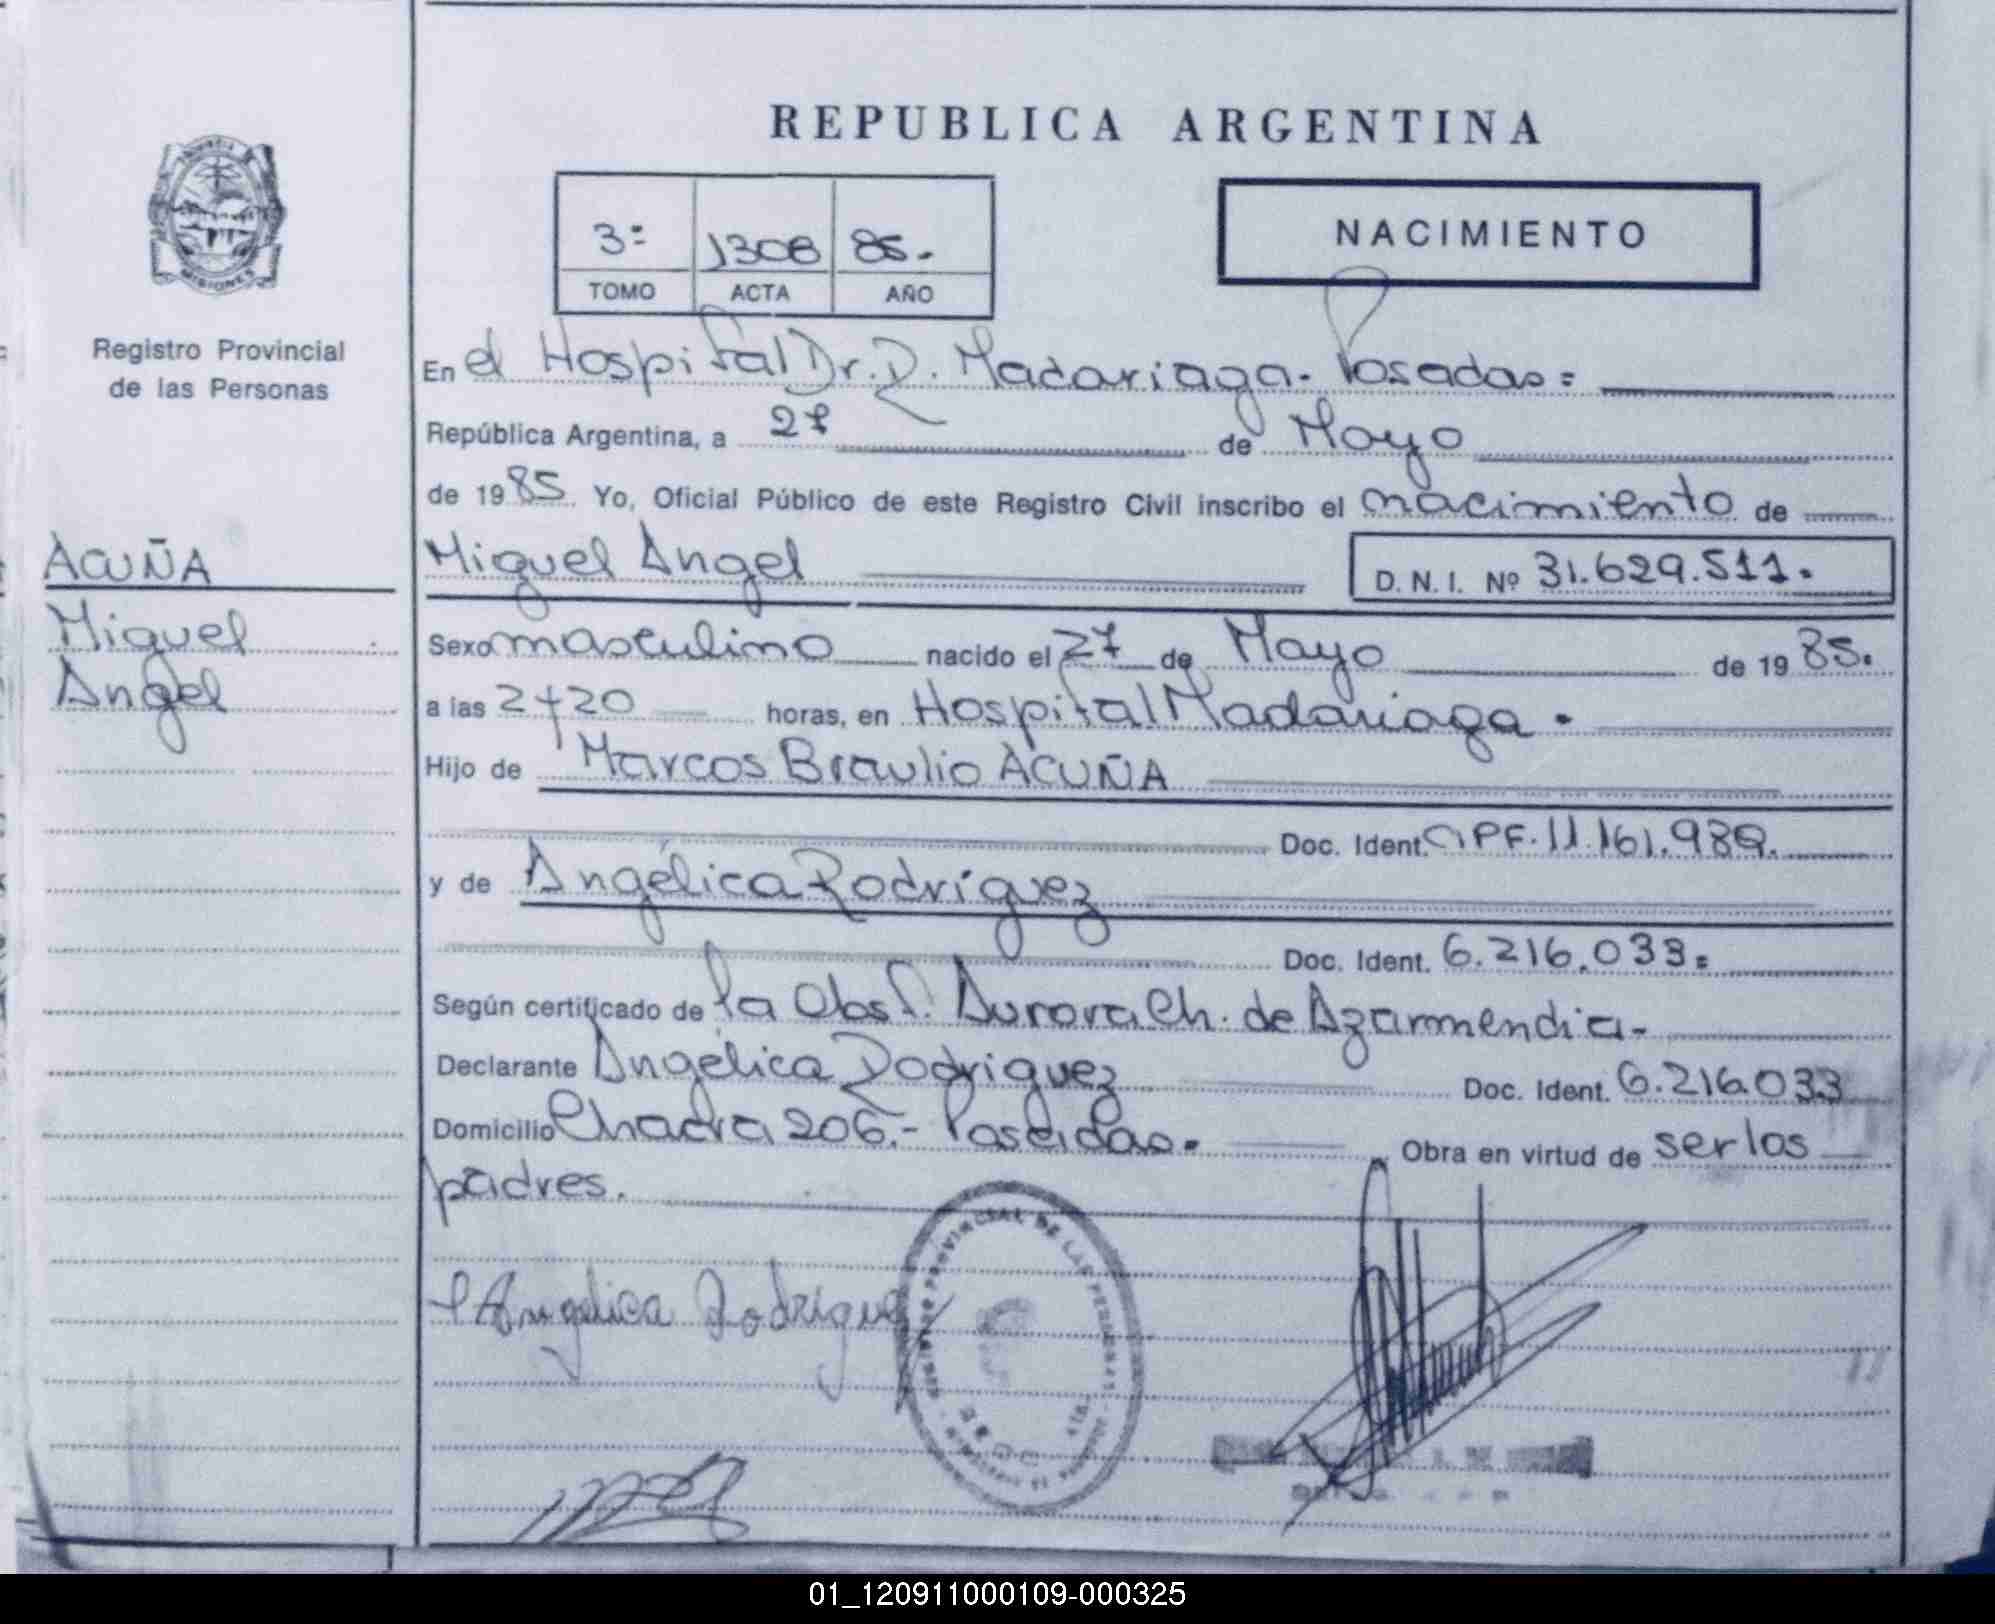 REPUBLICA ARGENTINA
3º 1308 85.-
TOMO ACTA AÑO
NACIMIENTO
MISIONES
Registro Provincial
de las Personas
ACUÑA
Miguel
Angel
En el Hospital Dr. R. Madariaga - Posadas=
República Argentina, a 27 de Mayo
de 1985. Yo, Oficial Público de este Registro Civil inscribo el nacimiento de
Miguel Angel D. N. I. Nº 31.629.511.
Sexo masculino nacido el 27 de Mayo de 1985.
a las horas, en Hospital Madariaga.
Hijo de Marcos Braulio ACUÑA
Doc. Ident. CIPF. 11.161.989.
y de Angélica Rodríguez
Doc. Ident. 6.216.033=
Según certificado de la Obst. Aurora Ch. de Azarmendia-
Declarante Angélica Rodríguez Doc. Ident. 6.216.033
Domicilio Chacra 206.- Posadas. Obra en virtud de ser los
padres.
Angelica Rodriguez
PROVINCIAL DE LAS PERSONAS
01_120911000109-000325